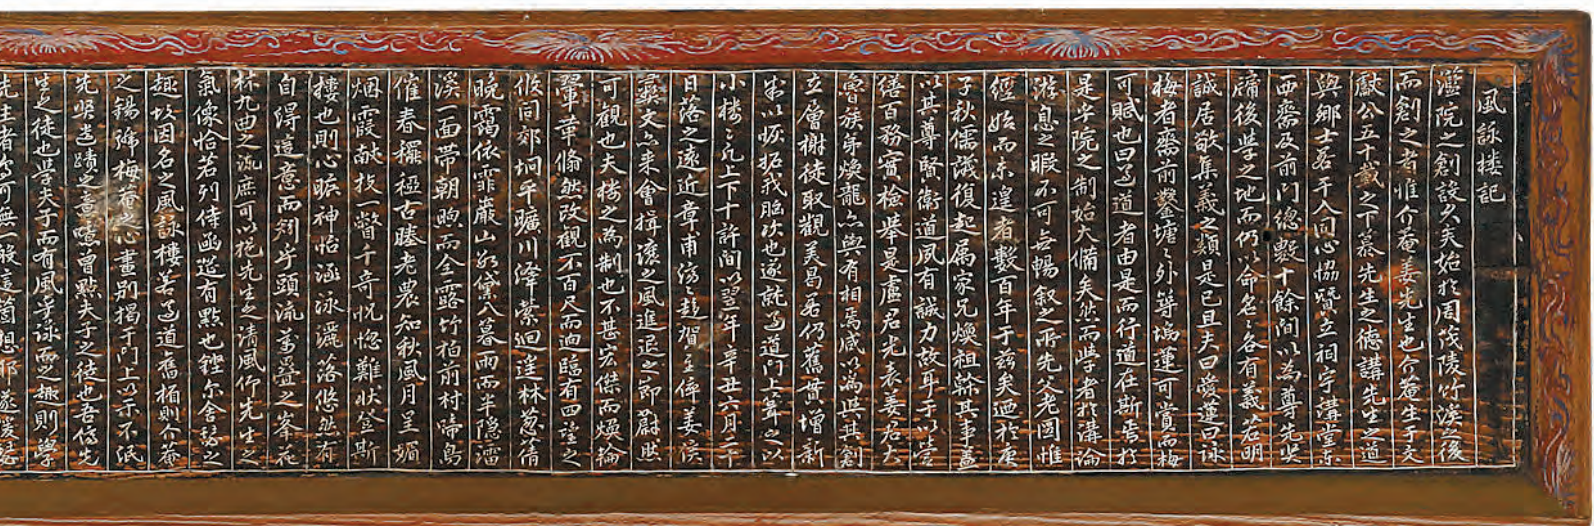 風詠樓記
灆院之創設久矣始於周茂陵竹溪之後
而創之者惟介菴姜先生也介菴生于文
獻公五十載之下慕先生之德講先生之道
與鄉士若干人同心恊贊立祠宇講堂東
西齋及前門總數十餘間以為尊先奬
後學之地而仍以命名之各有義若明
誠居敬集義之類是已且夫曰愛蓮曰詠
梅者齋前鑿塘塘外等塢蓮可賞而梅
可賦也曰道者由是而行道在斯焉於
是乎院之制始大備矣然而學者於講論
游息之暇不可無暢叙之所先父老圖惟
經始而未遑者數百年于玆矣逎於庚
子秋儒議復起属家兄煥祖榦其事盖
以其尊賢衛道夙有誠力故耳于以營
繕百務實檢擧是盧君光表姜君大
魯族弟煥龍亦與有相焉咸以為與其創
立層榭徒取觀美曷若仍舊貫增新
制以恢拓我臨次也遂就道門上葺之以
小樓樓凡上下十許間以翌年辛丑六月二十
日落之遠近章甫済趍賀主倅姜侯
爕文亦来會揖讓之風進退之節蔚然
可觀也夫樓之為制也不甚宏傑而煥輪
翬革翛然改觀不百尺而逈臨有四望之
攸同郊坰平曠川澤縈迴逹林葱蒨
晚靄依霏巖山如黛八暮雨而半隐㵢
溪一面帯朝昫而全露竹栢前村啼鳥
催春擢稏古塍老農知秋風月呈媚
烟霞献技一瞥千竒怳惚難状登斯
樓也則心曠神怡涵泳灑落悠然有
自得逹意而矧乎頭流萬疊之峯花
林九曲之流庶可以挹先生之清風仰先生之
氣像恰若列侍函筵有點也鏗尒舍瑟之
趣故因名之風詠樓若道舊楣則介菴
之錫號梅菴之心畫別揭于門上以示不泯
先奬古蹟之意噫曾點夫子之徒也吾儕先
生之徒也學夫子而有風乎詠而之趣則學
先生者烏可無一般這箇想耶遂